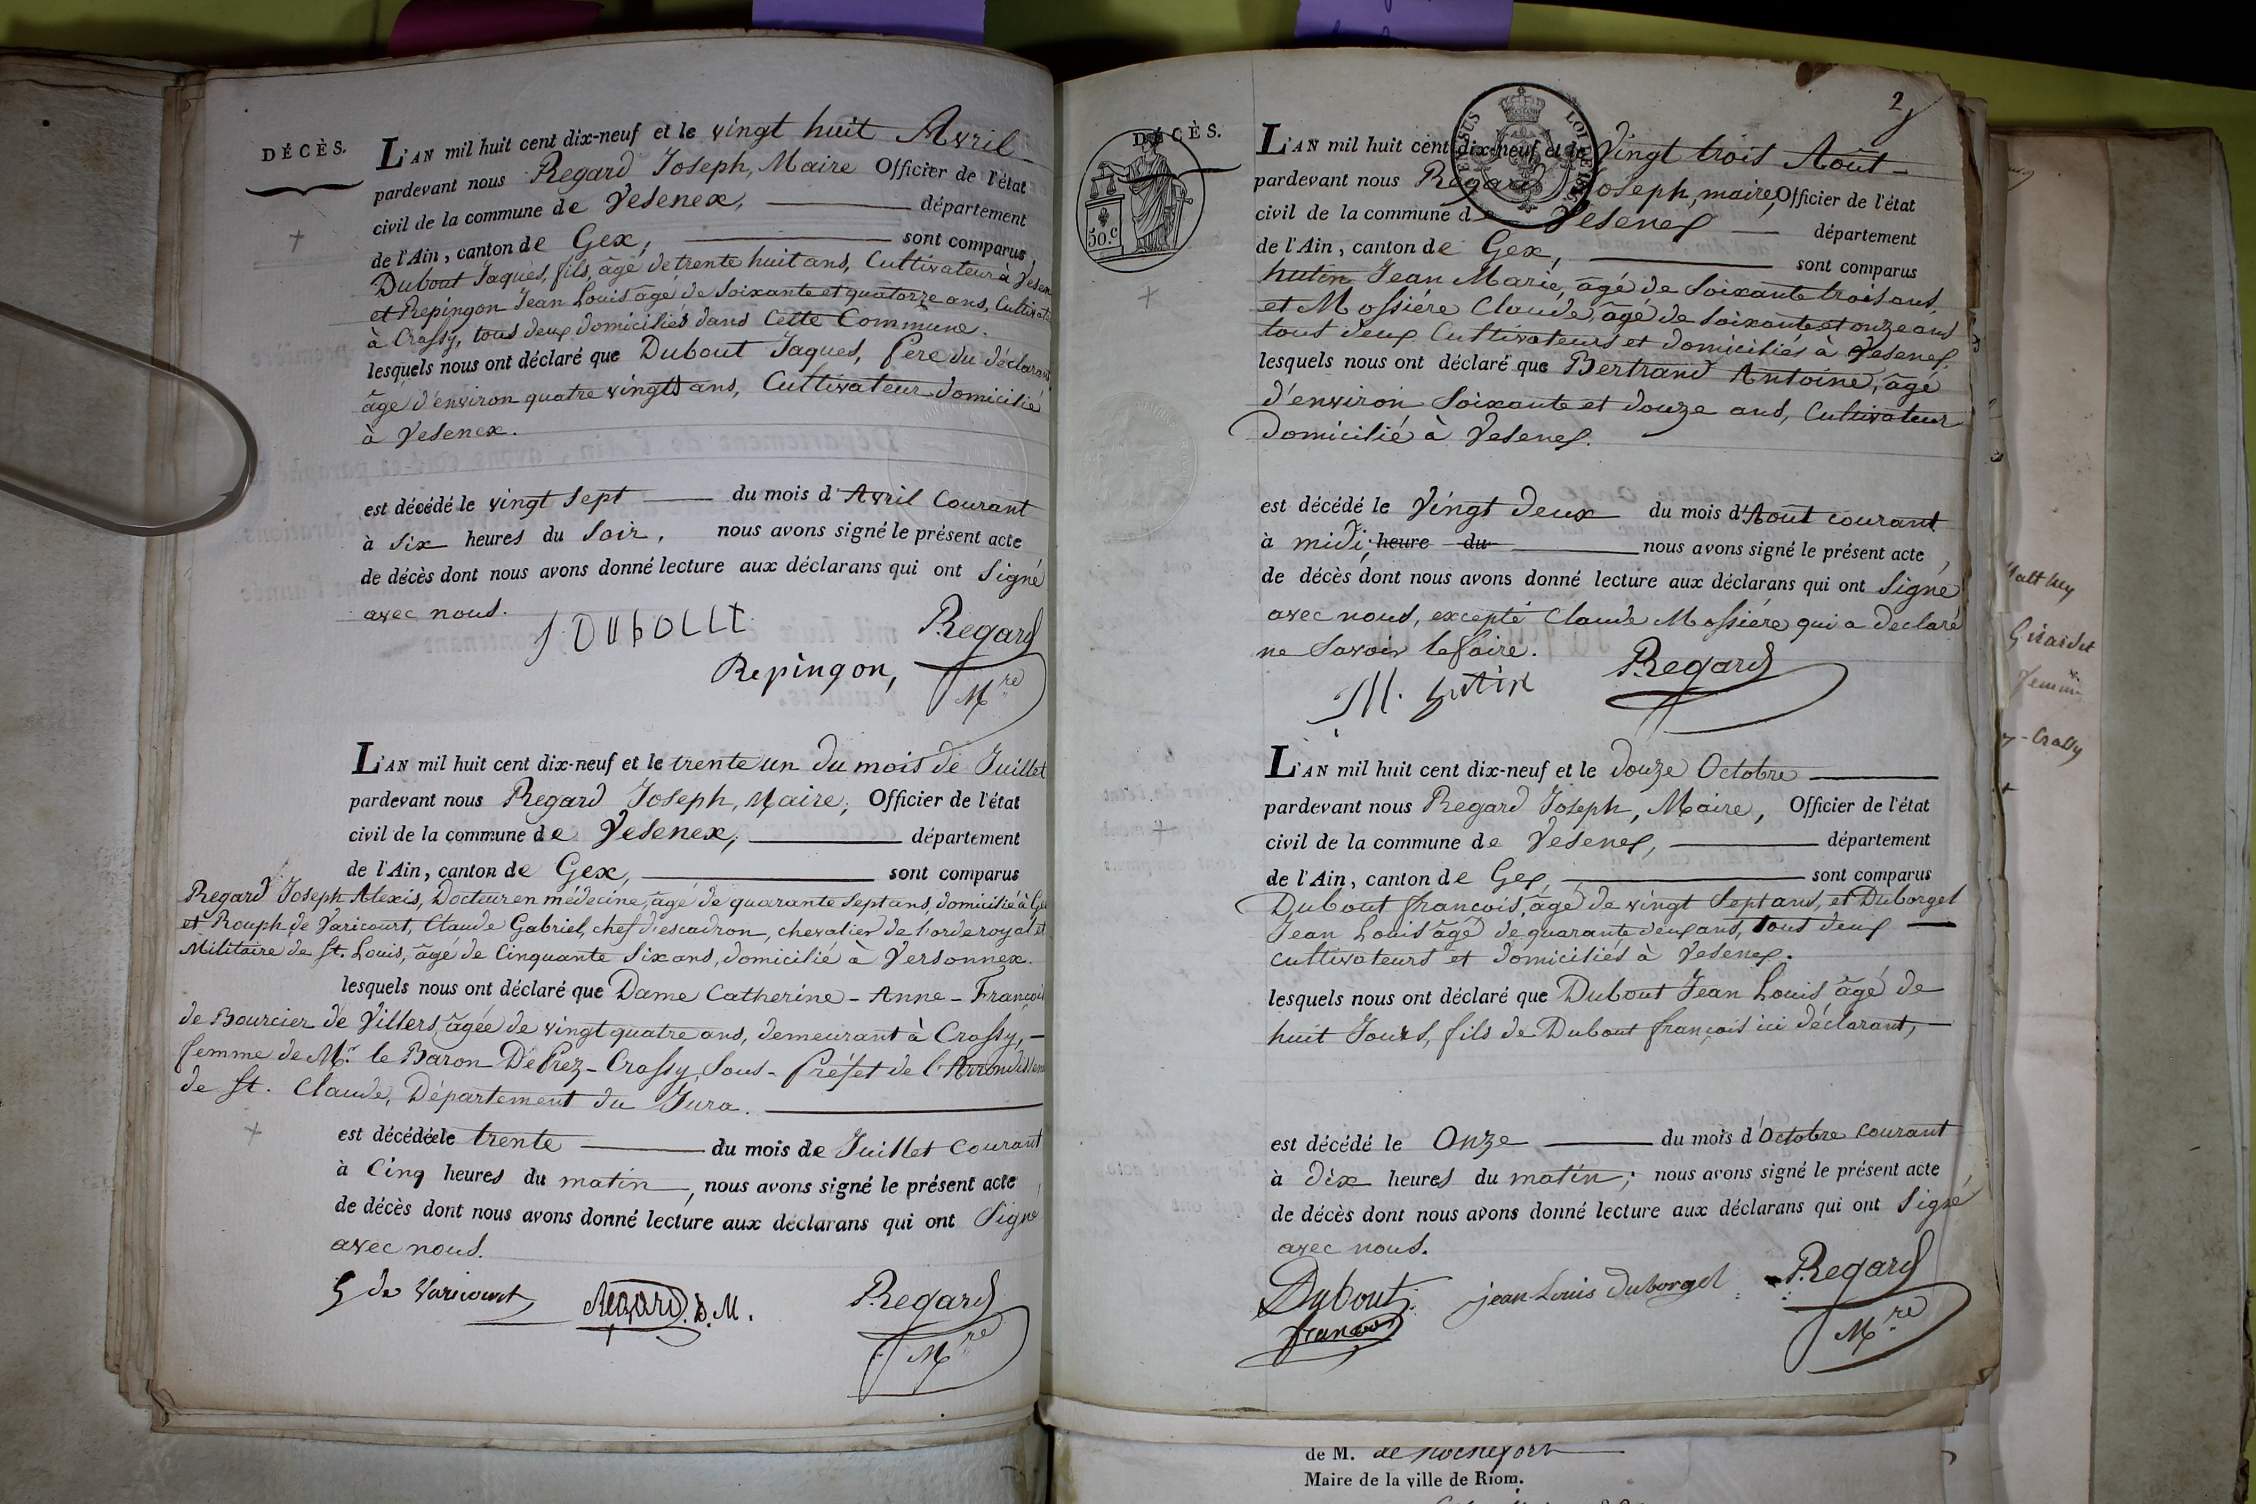 DÉCÈS.
L'AN mil huit cent dix-neuf et le vingt huit Avril
pardevant nous Regard Joseph, Maire Officier de l'état
civil de la commune de Vesenex, département
de l'Ain, canton de Gex, sont comparus
Dubout Jaques, fils, âgé de trente huit ans, Cultivateur à Vesen
et Repingon Jean Louis âgé de Soixante et quatorze ans, Cultivate
à Crassy, tous deux domiciliés dans Cette Commune.
lesquels nous ont déclaré que Dubout Jaques, Pere du déclarant
âgé d'environ quatre vingts ans, Cultivateur domicilié
à Vesenex.
est décédé le vingt Sept du mois d'Avril Courant
à Six heures du Soir, nous avons signé le présent acte
de décès dont nous avons donné lecture aux déclarans qui ont Signé
avec nous.
J. DUbOUt Regard
Repingon, Mre
L'AN mil huit cent dix-neuf et le trente un du mois de Juillet
pardevant nous Regard Joseph, Maire, Officier de l'état
civil de la commune de Vesenex, département
de l'Ain, canton de Gex, sont comparus
Regard Joseph Alexis, Docteur en médecine, âgé de quarante Sept ans, domicilié à Gex
et Rouph de Varicourt, Claude Gabriel, chef d'escadron, chevalier de l'orde royal et
Militaire de St. Louis, âgé de Cinquante Six ans, domicilié à Versonnex.
lesquels nous ont déclaré que Dame Catherine-Anne-Françoise
de Bourcier de Villers, âgée de vingt quatre ans, demeurant à Crassy,
femme de Mr. le Baron De Prez-Crassy, Sous-Préfet de l'Arrondissem
de St. Claude, Département du Jura.
est décédée le trente du mois de Juillet Courant
à Cinq heures du matin, nous avons signé le présent acte
de décès dont nous avons donné lecture aux déclarans qui ont Signé
avec nous.
G de Varicourt Regard. D. M. Regard
Mre
2
DÉCÈS.
50.c
L'AN mil huit cent dix-neuf et le Vingt trois Août
pardevant nous Regard Joseph, maire, Officier de l'état
civil de la commune de Vesenex département
de l'Ain, canton de Gex, sont comparus
hutin Jean Marie, âgé de Soixante trois ans,
et Mossiére Claude, âgé de Soixante et onze ans
tous deux Cultivateurs et domiciliés à Vesenex.
lesquels nous ont déclaré que Bertrand Antoine, âgé
d'environ Soixante et douze ans, Cultivateur
domicilié à Vesenex.
est décédé le Vingt deux du mois d'Août courant
à midi, heure du nous avons signé le présent acte
de décès dont nous avons donné lecture aux déclarans qui ont Signé
avec nous, excepté Claude Mossiére qui a declaré
ne Savoir le faire.
J M. hutin Regard
L'AN mil huit cent dix-neuf et le douze Octobre
pardevant nous Regard Joseph, Maire, Officier de l'état
civil de la commune de Vesenex, département
de l'Ain, canton de Gex sont comparus
Dubout françois, âgé de vingt Sept ans, et Duborgel
Jean Louis âgé de quarante deux ans, tous deux
cultivateurs et domiciliés à Vesenex.
lesquels nous ont déclaré que Dubout Jean Louis âgé de
huit Jours, fils de Dubout françois ici déclarant,
est décédé le Onze du mois d'Octobre courant
à dix heures du matin; nous avons signé le présent acte
de décès dont nous avons donné lecture aux déclarans qui ont Signé
avec nous.
Dubout jean Louis Duborgel Regard
françois Mre
Girardet
Crassy
de M. de Rochefort
Maire de la ville de Riom.